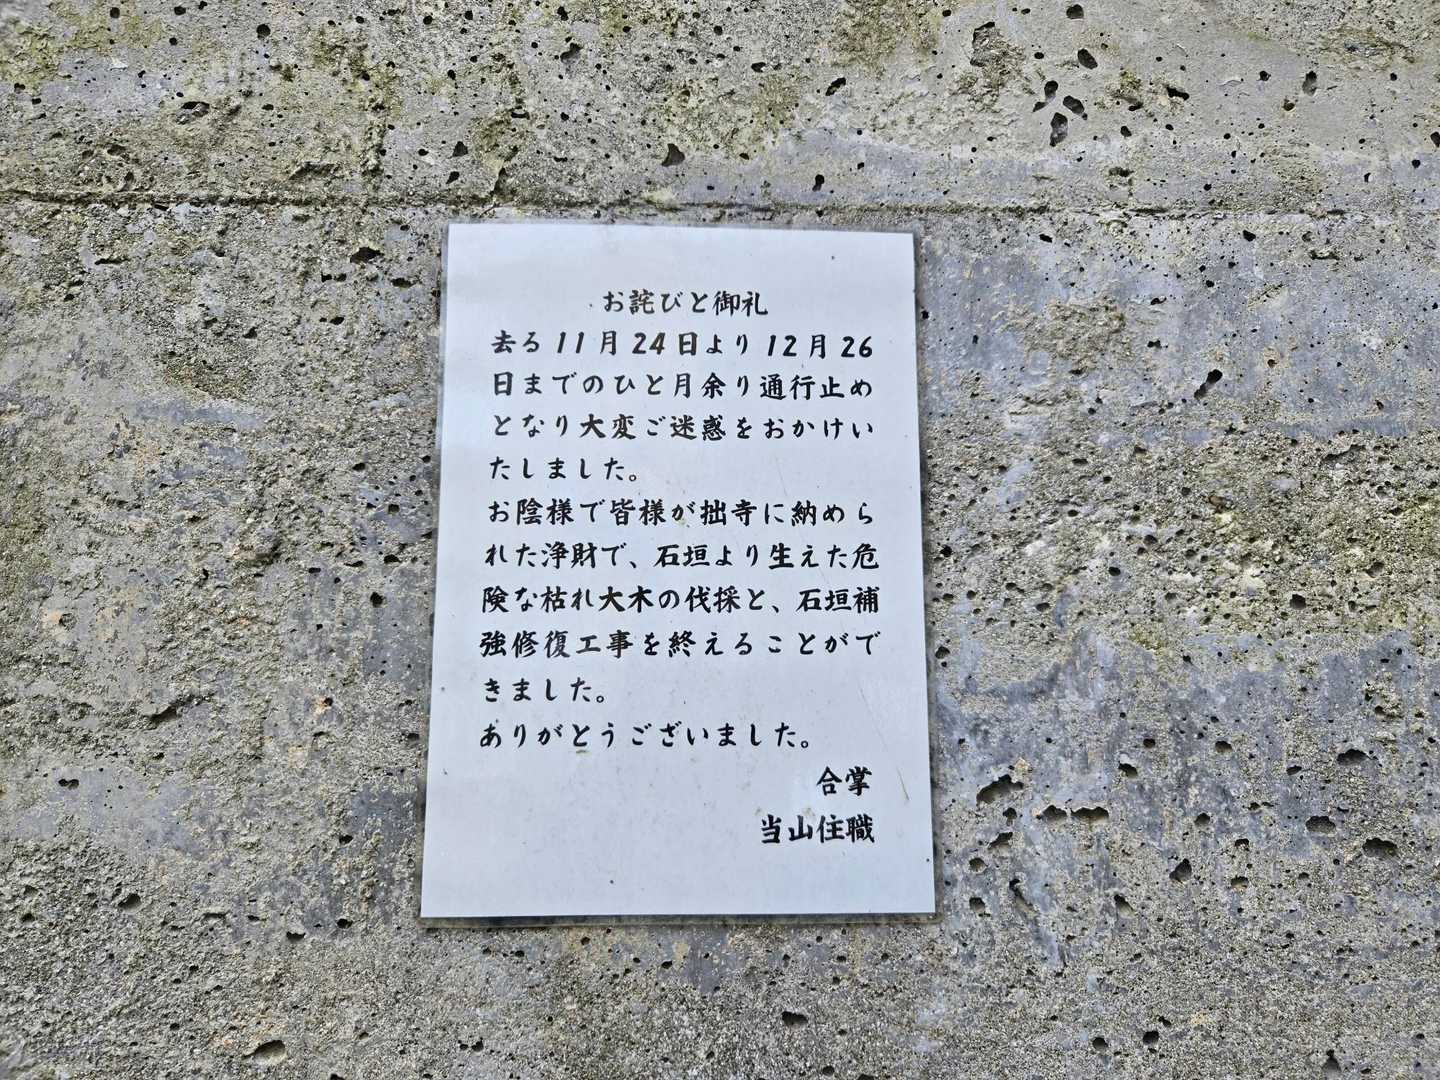 お詫びと御礼
去る11月24日より12月26
日までのひと月余り通行止め
となり大変ご迷惑をおかけい
たしました。
お陰様で皆様が拙寺に納めら
れた浄財で、石垣より生えた危
険な枯れ大木の伐採と、石垣補
強修復工事を終えることがで
きました。
ありがとうございました。
合掌
当山住職